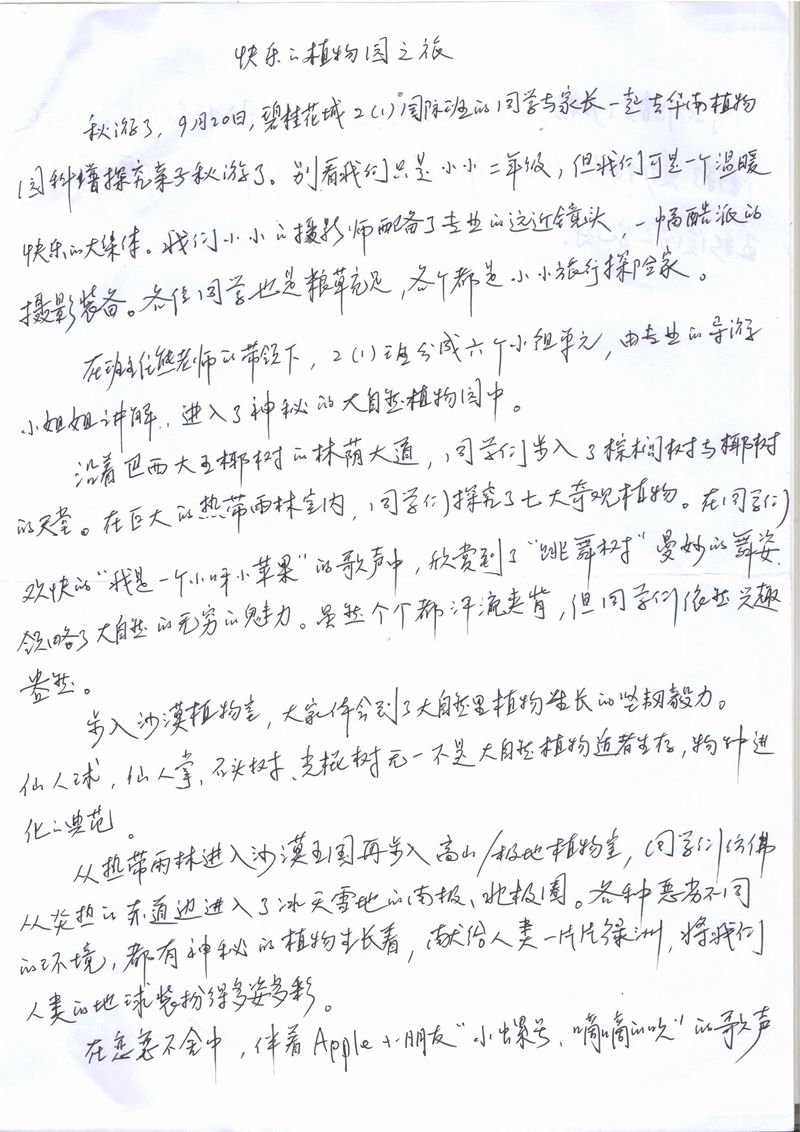 快乐的植物园之旅
秋游了，9月20日，碧桂花城2（1）国际班的同学与家长一起去华南植物
园科普探究亲子秋游了。别看我们只是小小二年级，但我们可是一个温暖
快乐的大集体。我们小小的摄影师配备了专业的远近镜头，一幅酷派的
摄影装备。各位同学也是粮草充足，各个都是小小旅行探险家。
在班主任熊老师的带领下，2（1）班分成六个小组单元，由专业的导游
小姐姐讲解，进入了神秘的大自然植物园中。
沿着巴西大王椰树的林荫大道，同学们步入了棕榈树与椰树
的天堂。在巨大的热带雨林室内，同学们探究了七大奇观植物。在同学们
欢快的“我是一个小呀小苹果”的歌声中，欣赏到了“跳舞树”曼妙的舞姿，
领略了大自然的无穷的魅力。虽然个个都汗流夹背，但同学们依然兴趣
盎然。
步入沙漠植物室，大家体会到了大自然里植物生长的坚韧毅力。
仙人球，仙人掌，石头树、光棍树无一不是大自然植物适者生存，物种进
化之典范。
从热带雨林进入沙漠王国再步入高山/极地植物室，同学们仿佛
从炎热的赤道边进入了冰天雪地的南极、北极圈。各种恶劣不同
的环境，都有神秘的植物生长着，献给人类一片片绿洲，将我们
人类的地球装扮得多姿多彩。
在恋恋不舍中，伴着Apple小朋友“小螺号、嘀嘀的吹”的歌声